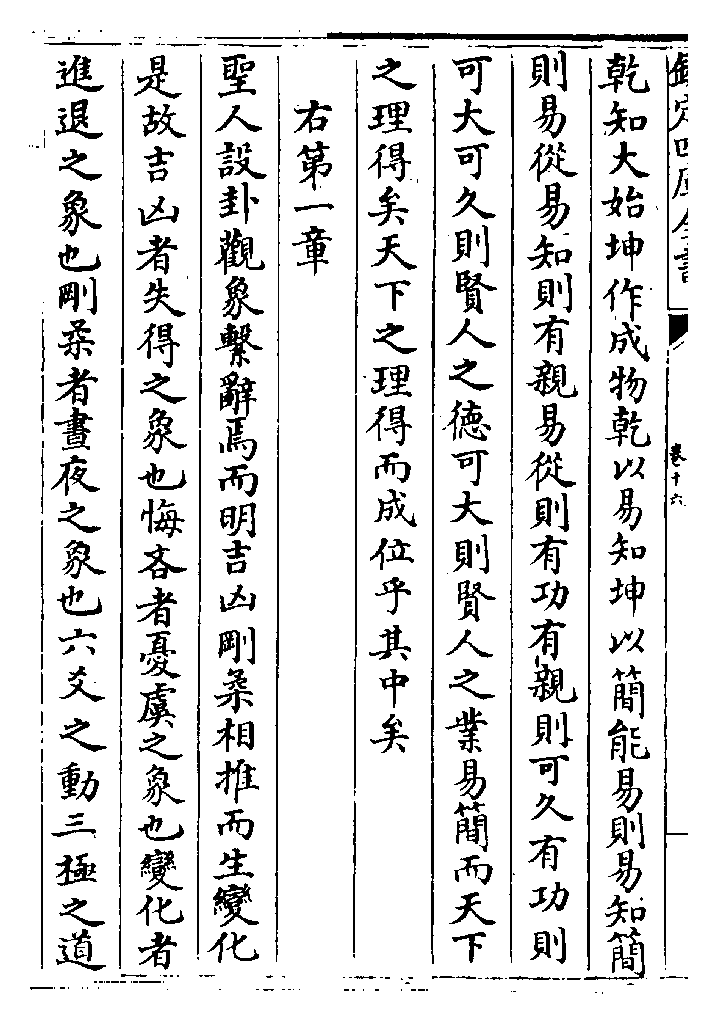 欽定四庫全書
卷十六
乾知大始坤作成物乾以易知坤以簡能易則易知簡
則易從易知則有親易從則有功有親則可久有功則
可大可久則賢人之德可大則賢人之業易簡而天下
之理得矣天下之理得而成位乎其中矣
右第一章
聖人設卦觀象繫辭焉而明吉凶剛柔相推而生變化
是故吉凶者失得之象也悔吝者憂虞之象也變化者
進退之象也剛柔者晝夜之象也六爻之動三極之道